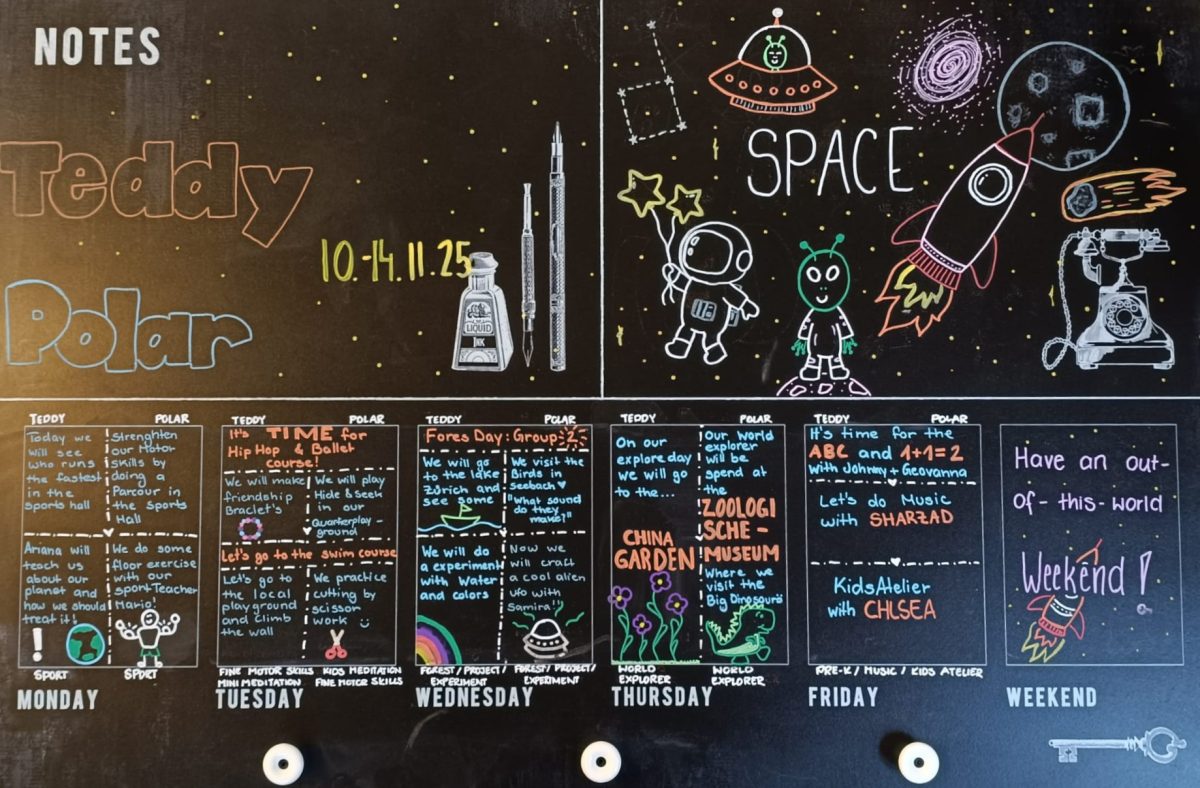 NOTES
Teddy
10.-14.11.25
Polar
LIQUID
INK
SPACE
TEDDY
POLAR
Today we
will see
who runs
the fastest
in the
sports hall
Strenghten
our Motor
skills by
doing a
Parcour in
the Sports
Hall
Ariana will
teach us
about our
planet and
how we should
treat it!
!
We do some
floor exercise
with our
sportTeacher
Mario!
SPORT
SPORT
MONDAY
TEDDY
POLAR
It's TIME for
Hip Hop & Ballet
course!
We will make
friendship
Braclet's
We will play
Hide & Seek
in our
Quartierplay-
ground
Let's go to the swim course
Let's go to
the local
playground
and climb
the wall
We practice
cutting by
scissor
work
FINE MOTOR SKILLS
MINI MEDITATION
KIDS MEDITATION
FINE MOTOR SKILLS
TUESDAY
TEDDY
POLAR
Fores Day: Group 2
We will go
to the lake
Zürich and
see some
We visit the
Birds in
Seebach
"What sound
do they
make?"
We will do
a experiment
with Water
and colors
Now we
will craft
a cool alien
ufo with
Samira!!
FOREST/PROJECT/
EXPERIMENT
FOREST/PROJECT/
EXPERIMENT
WEDNESDAY
TEDDY
POLAR
On our
exploreday
we will go
to the...
CHINA
GARDEN
Our World
explorer
will be
spend at
the
ZOOLOGI
SCHE-
MUSEUM
Where we
visit the
Big Dinosaurs
WORLD
EXPLORER
WORLD
EXPLORER
THURSDAY
TEDDY
POLAR
It's time for the
ABC and 1+1=2
with Johnny + Geovanna
Let's do Music
with SHARZAD
KidsAtelier
with CHLSEA
PRE-K / MUSIC / KIDS ATELIER
FRIDAY
Have an out-
of-this-world
Weekend!
WEEKEND